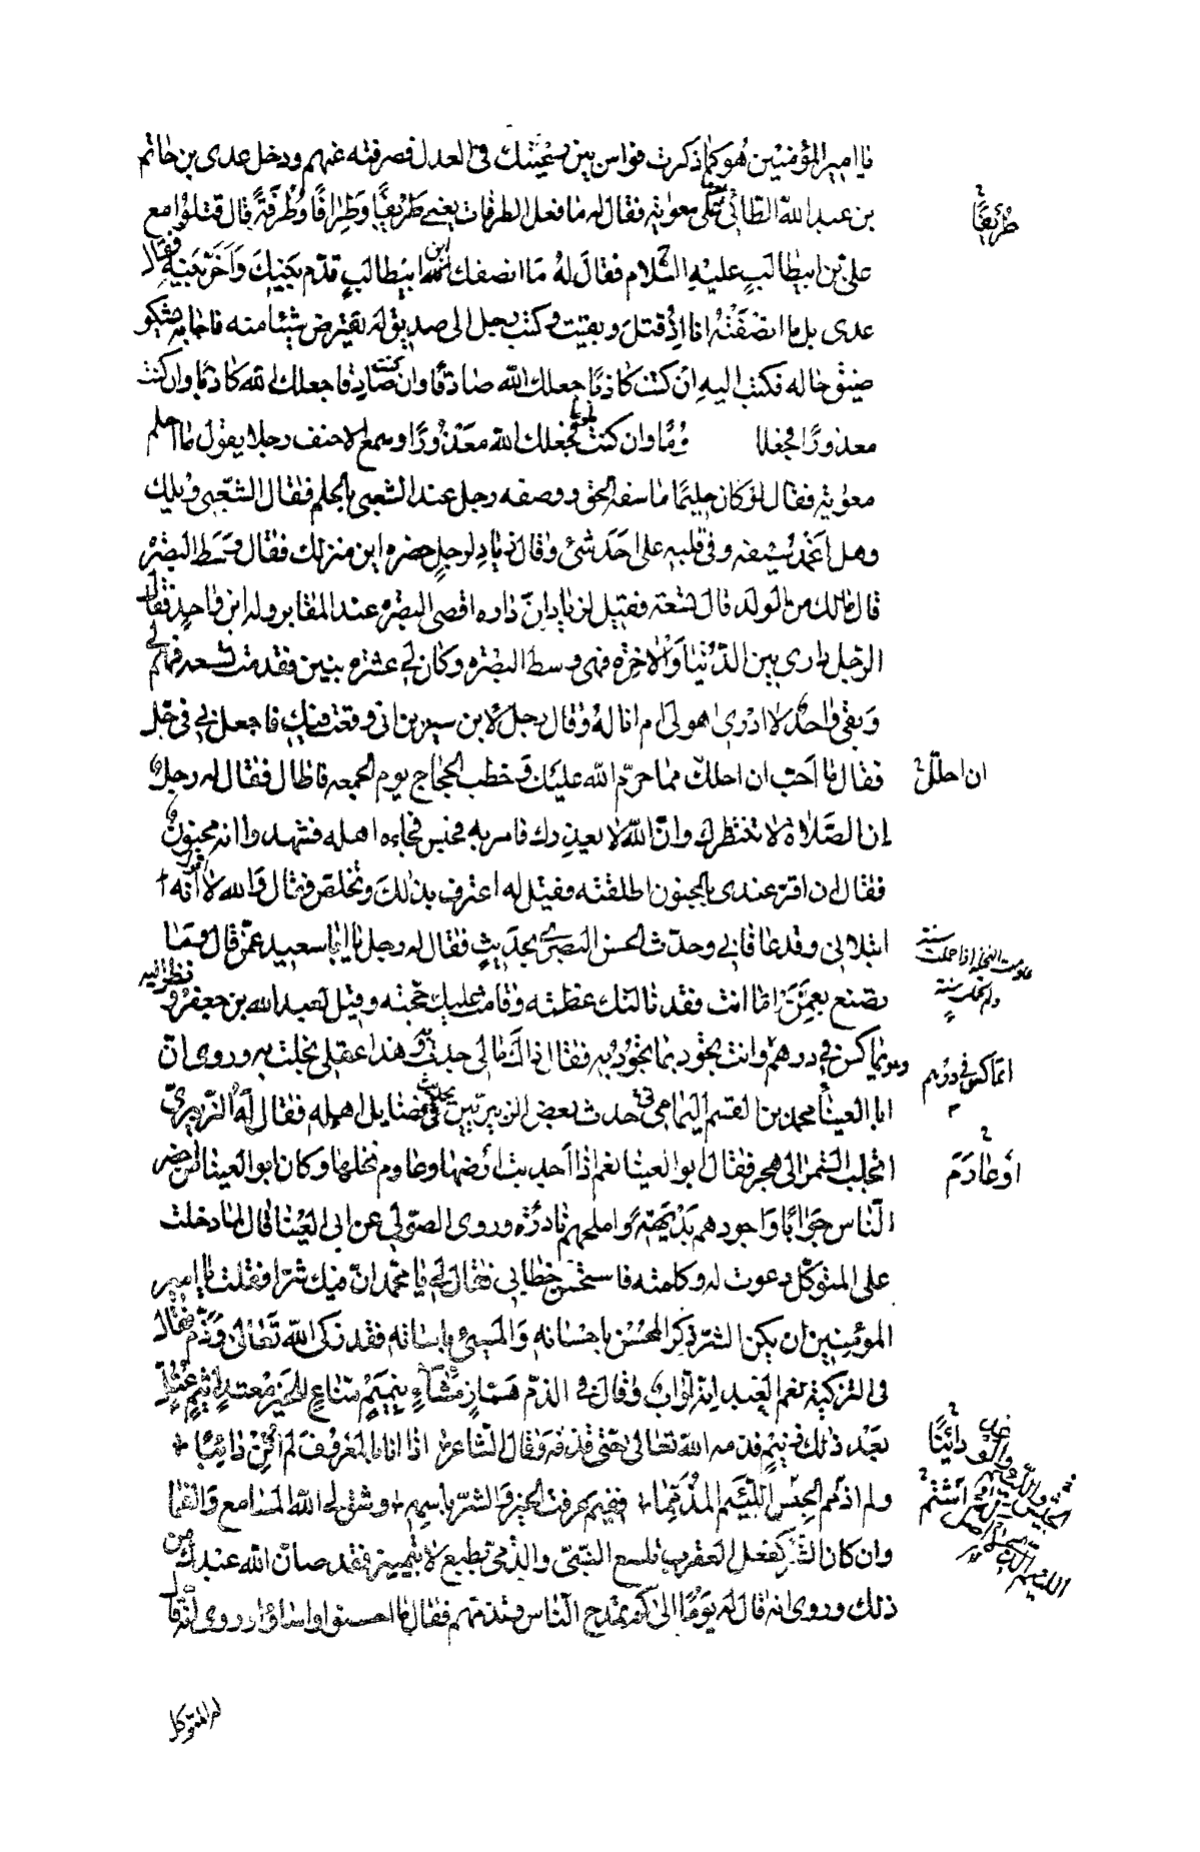 يا امير المؤمنين هو كما ذكرت فواس بين رعيتك في العدل فصرفته عنهم ودخل عدي بن حاتم
بن عبد الله الطائي على معوية فقال له ما فعل الطرفات يعني طريفًا وطرافًا وطرفة قال قتلوا مع
طريفًا
علي بن ابيطالب عليه السلام فقال له ما انصفك ابن ابيطالب قدم بنيك واخر بنيه فقال
عدي بل ما انصفته انا اذ قتل وبقيت وكتب رجل الى صديق له يقترض شيئا منه فاجابه يشكو
ضيق حاله فكتب اليه ان كنت كاذبا جعلك الله صادقا وان كنت صادقا جعلك الله كاذبا وان كنت
معذورًا فجعلك ومًا وان كنت ملومًا فجعلك الله معذورًا وسمع الاحنف رجلا يقول ما احلم
معوية فقال لو كان حليمًا ما سفه الحق ووصف رجل عند الشعبي بالحلم فقال الشعبي ويلك
وهل اغمد سيفه وفي قلبه على احد شئ وقال زياد لرجل حضره اين منزلك فقال وسط البصره
قال مالك من الولد قال تسعة فقيل لزياد ان داره اقصى البصره عند المقابر وله ابن واحد فقال
الرجل داري بين الدنيا والاخرة فهي وسط البصره وكان لي عشره بنين فقدمت تسعه فهم لي
وبقي واحد لا ادري اهو لي ام انا له وقال رجل لابن سيرين اني وقعت فيك فاجعلني في حل
فقال ما احب ان احلك مما حرم الله عليك وخطب الحجاج يوم الجمعه فاطال فقال له رجل
ان احلّ لك
ان الصلاة لا تنتظرك وان الله لا يعذرك فامر به فحبس فجاءه اهله فشهدوا انه مجنون
فقال ان اقر عندي بالجنون اطلقته فقيل له اعترف بذلك وتخلص فقال والله لا اقول انه
ابتلاني وقد عافاني وحدث الحسن البصري بحديث فقال له رجل يا ابا سعيد عمن قال وما
عاومت النخلة اذا حملت سنة
ولم تحمل سنة
تصنع بعمن اما انت فقد نالتك عظته وقامت عليك حجته وقيل لعبد الله بن جعفر ونظر اليه
وهو يماكس في درهم وانت تجود بما تجود به فقال ذاك مالي جدت به وهذا عقلي بخلت به وروي ان
اتماكس في درهم
ابا العينا محمد بن القسم اليمامي حدث بعض الزبيريين بحديث في فضايل اهله فقال له الزبيري
اتجلب التمر الى هجر فقال ابو العينا نعم اذا اجدبت ارضها وعاوم نخلها وكان ابو العينا من احضر
او عادم
الناس جوابا واجودهم بديهة واملحهم نادرة وروى الصولي عن ابي العينا قال لما دخلت
على المتوكل دعوت له وكلمته فاستحسن خطابي فقال لي يا محمد ان فيك شرا فقلت يا امير
المومنين ان يكن الشر ذكر المحسن باحسانه والمسئ باسائته فقد زكى الله تعالى وذم فقال
في التزكية نعم العبد انه اواب وقال في الذم هماز مشاء بنميم مناع للخير معتد اثيم عتل
بعد ذلك زنيم فذمه الله تعالى حتى قذفه وقال الشاعر اذا انا بالمعروف لم اثن دائبًا
دائبًا
ولم اذمم الجبس اللئيم المذمما ففيم عرفت الخير والشر باسمه وشق لي الله المسامع والفما
اشتم
وان كان الشر كفعل العقرب تلسع النبي والذمي بطبع لا بتمييز فقد صان الله عبدك من
ذلك وروي انه قال له يوما الى كم تمدح الناس وتذمهم فقال ما احسنوا واساؤا وروي انه قال
له المتوكل